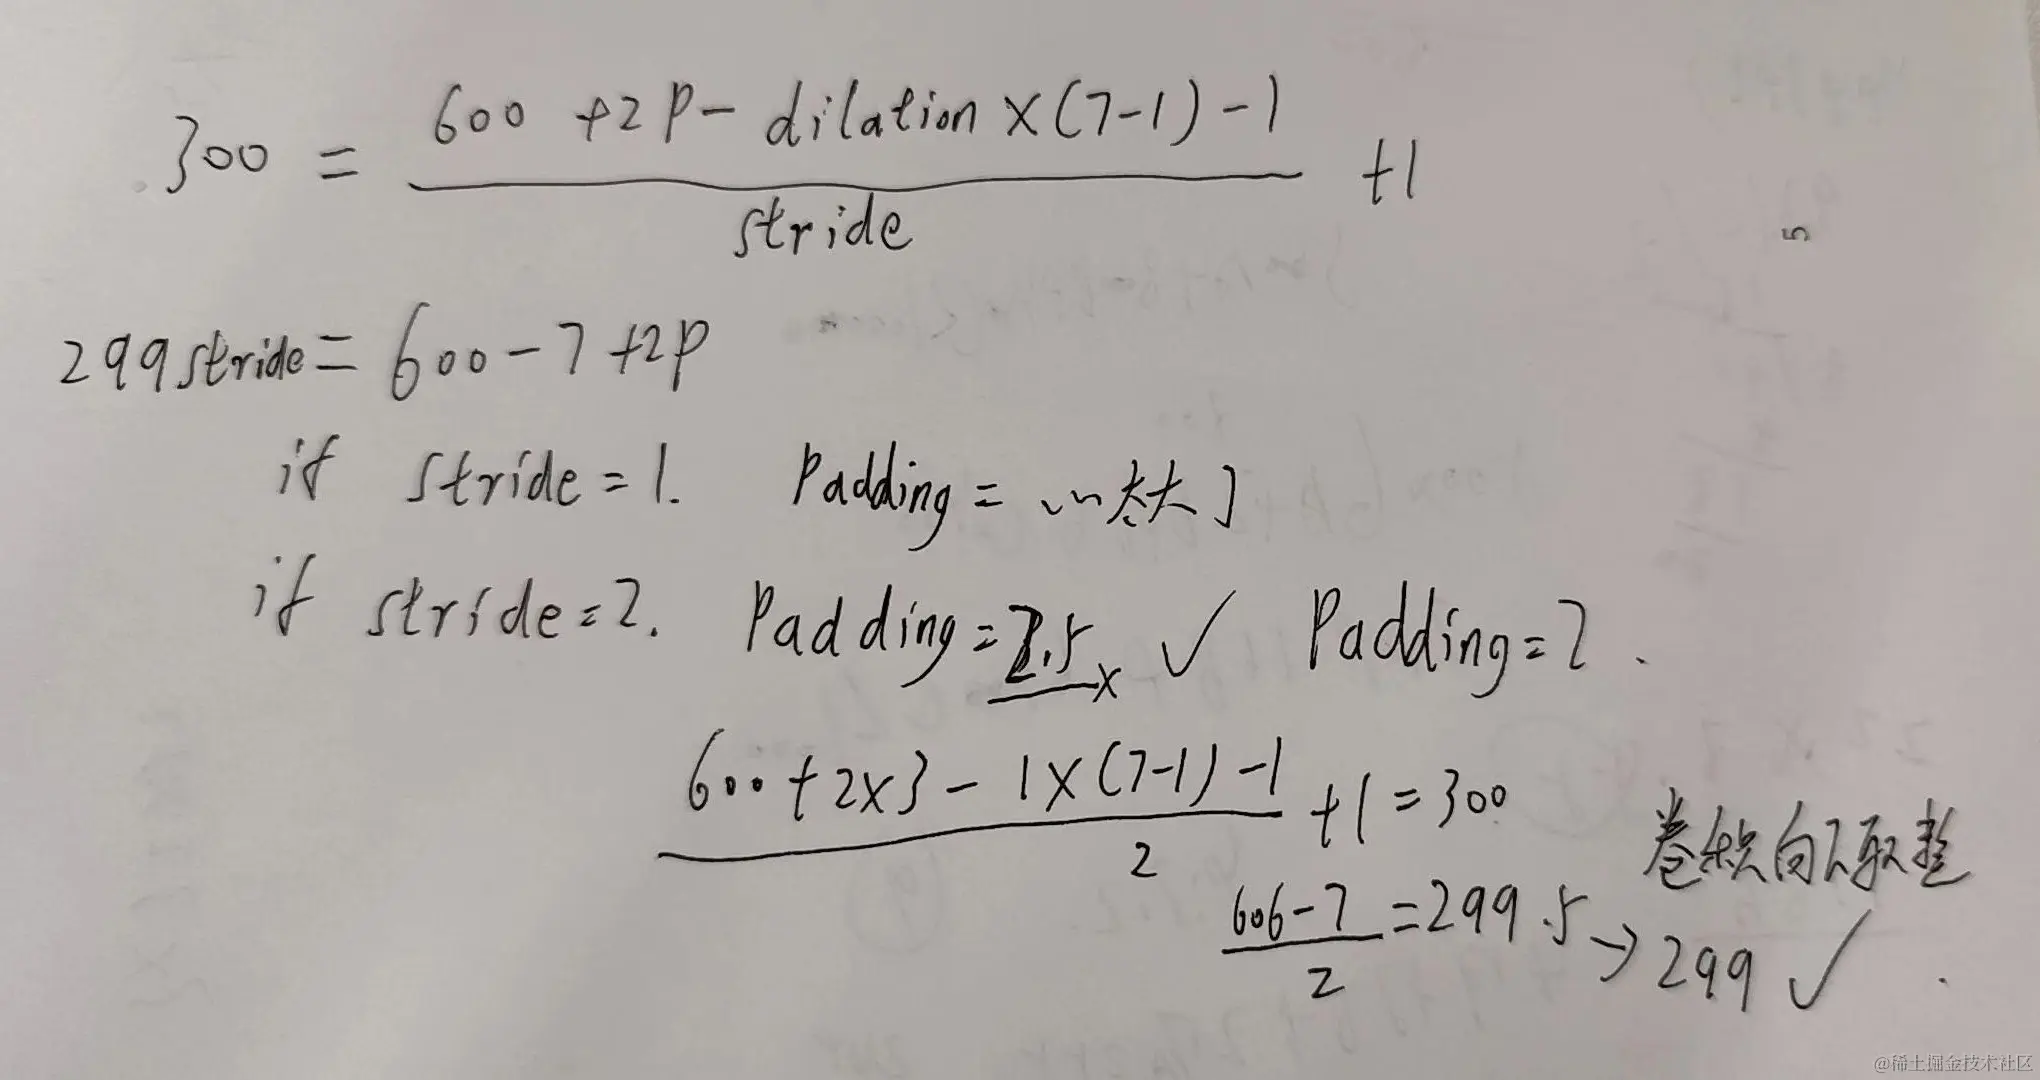 300 = (600 + 2P - dilation × (7-1) - 1) / stride + 1
5
299stride = 600 - 7 + 2P
if stride = 1. Padding = 太大了
if stride = 2. Padding = 2.5 × ✓ Padding = 2.
(600 + 2×3 - 1×(7-1) - 1) / 2 + 1 = 300
卷积向下取整
(606 - 7) / 2 = 299.5 → 299 ✓
@稀土掘金技术社区